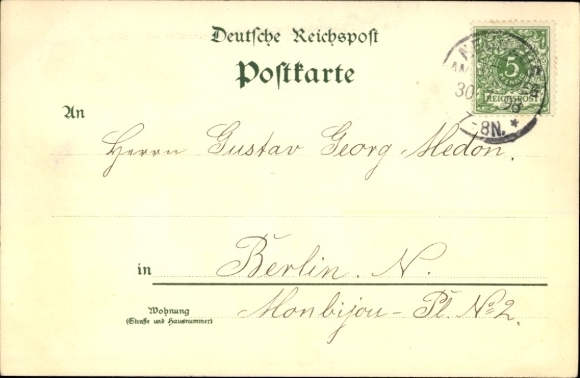 Deutsche Reichspost
Postkarte
5
REICHSPOST
30
8N. *
An
Herrn Gustav Georg Medon.
in Berlin. N.
Wohnung
(Straße und Hausnummer)
Monbijou-Pl. No 2.